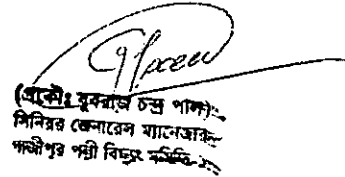 (প্রকৌঃ যুবরাজ চন্দ্র পাল)
সিনিয়র জেনারেল ম্যানেজার
গাজীপুর পল্লী বিদ্যুৎ সমিতি-